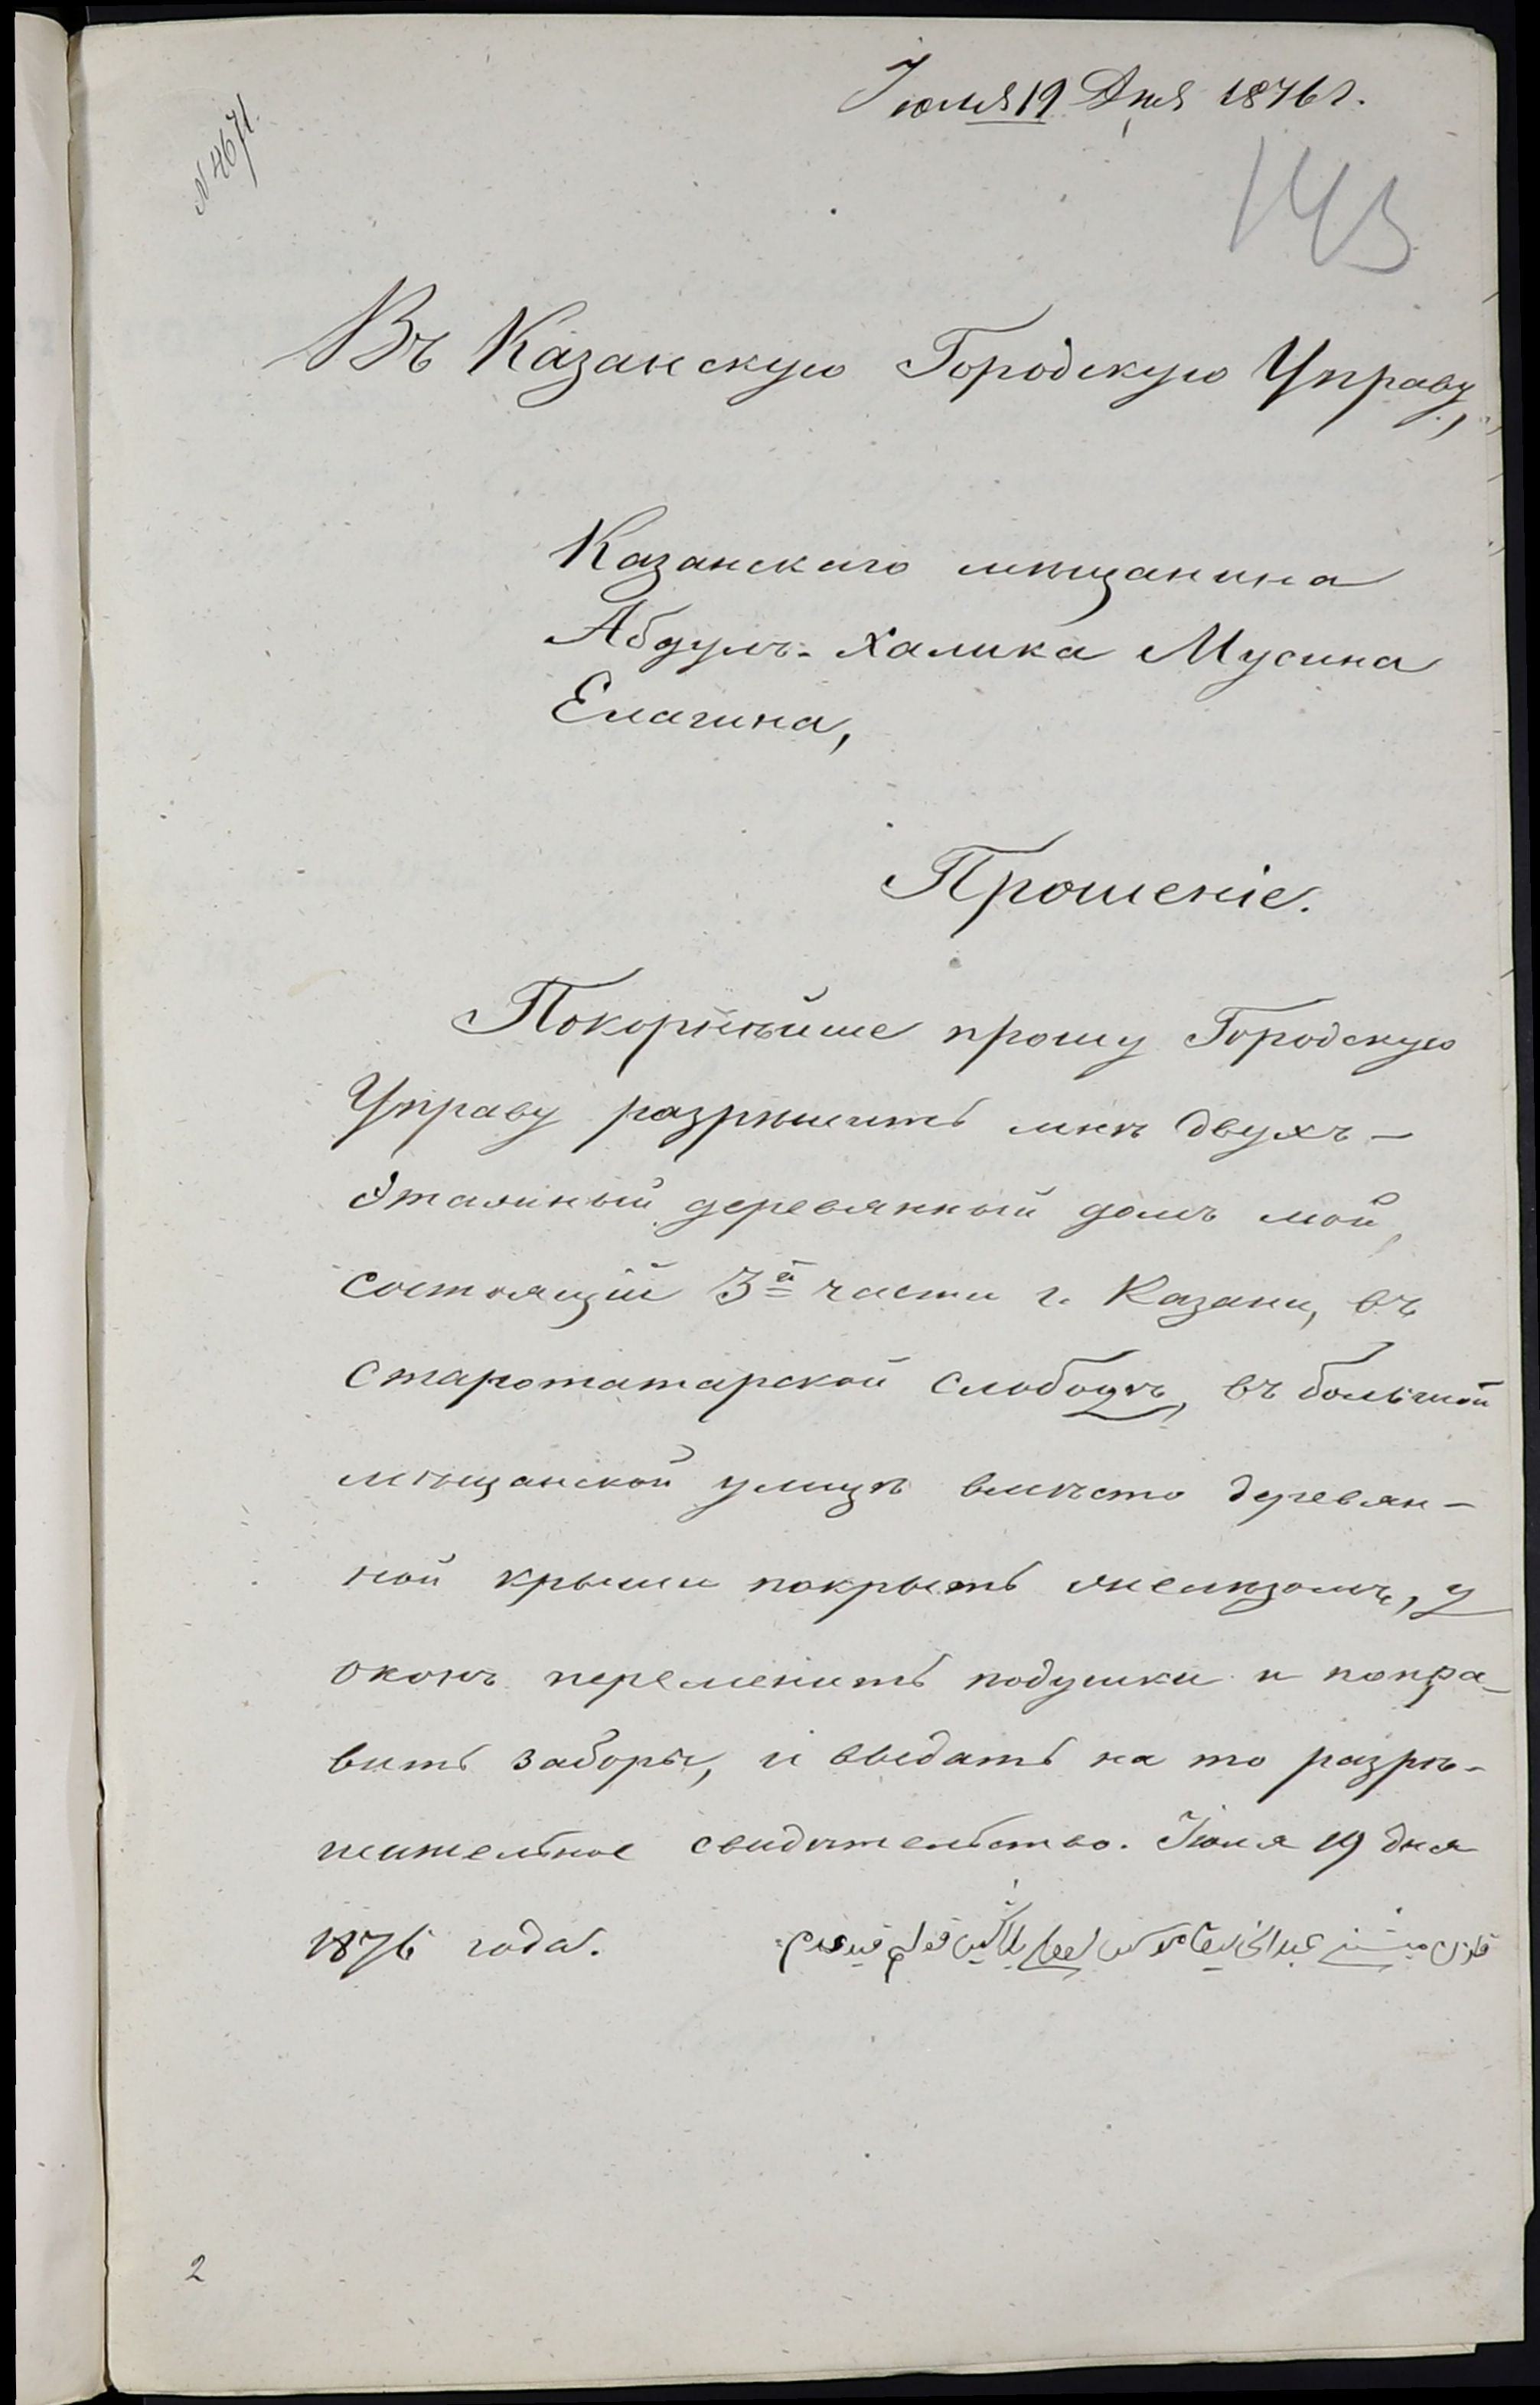 Іюля 19 Дня 1876 г.
N 4671.
143
Въ Казанскую Городскую Управу,
Казанскаго мѣщанина
Абдулъ-Халика Мусина
Елагина,
Прошеніе.
Покорнѣйше прошу Городскую
Управу разрѣшить мнѣ двухъ-
этажный деревянный домъ мой,
состоящій 3й части г. Казани, въ
старотатарской слободѣ, въ большой
мѣщанской улицѣ вмѣсто деревян-
ной крыши покрыть желѣзомъ, у
оконъ переменить подушки и попра-
вить заборы, и выдать на то разрѣ-
шительное свидѣтельство. Іюля 19 дня
1876 года.
2